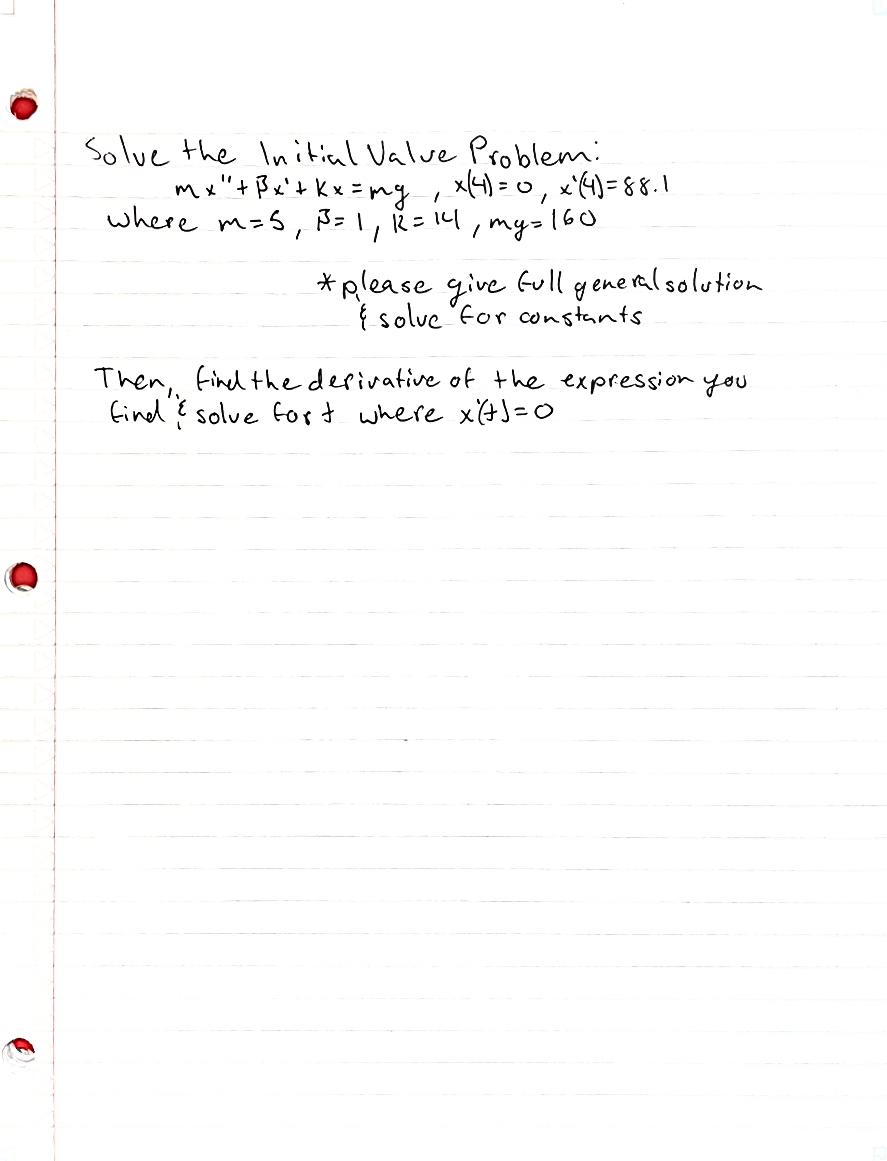 Solve the Initial Value Problem:
mx'' + βx' + kx = mg , x(4) = 0 , x'(4) = 88.1
where m = 5 , β = 1 , k = 14 , mg = 160
* please give full general solution
& solve for constants
Then, find the derivative of the expression you
find & solve for t where x'(t) = 0